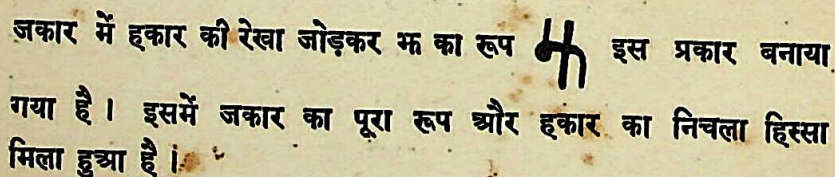 जकार में हकार की रेखा जोड़कर झ का रूप इस प्रकार बनाया
गया है । इसमें जकार का पूरा रूप और हकार का निचला हिस्सा
मिला हुआ है ।